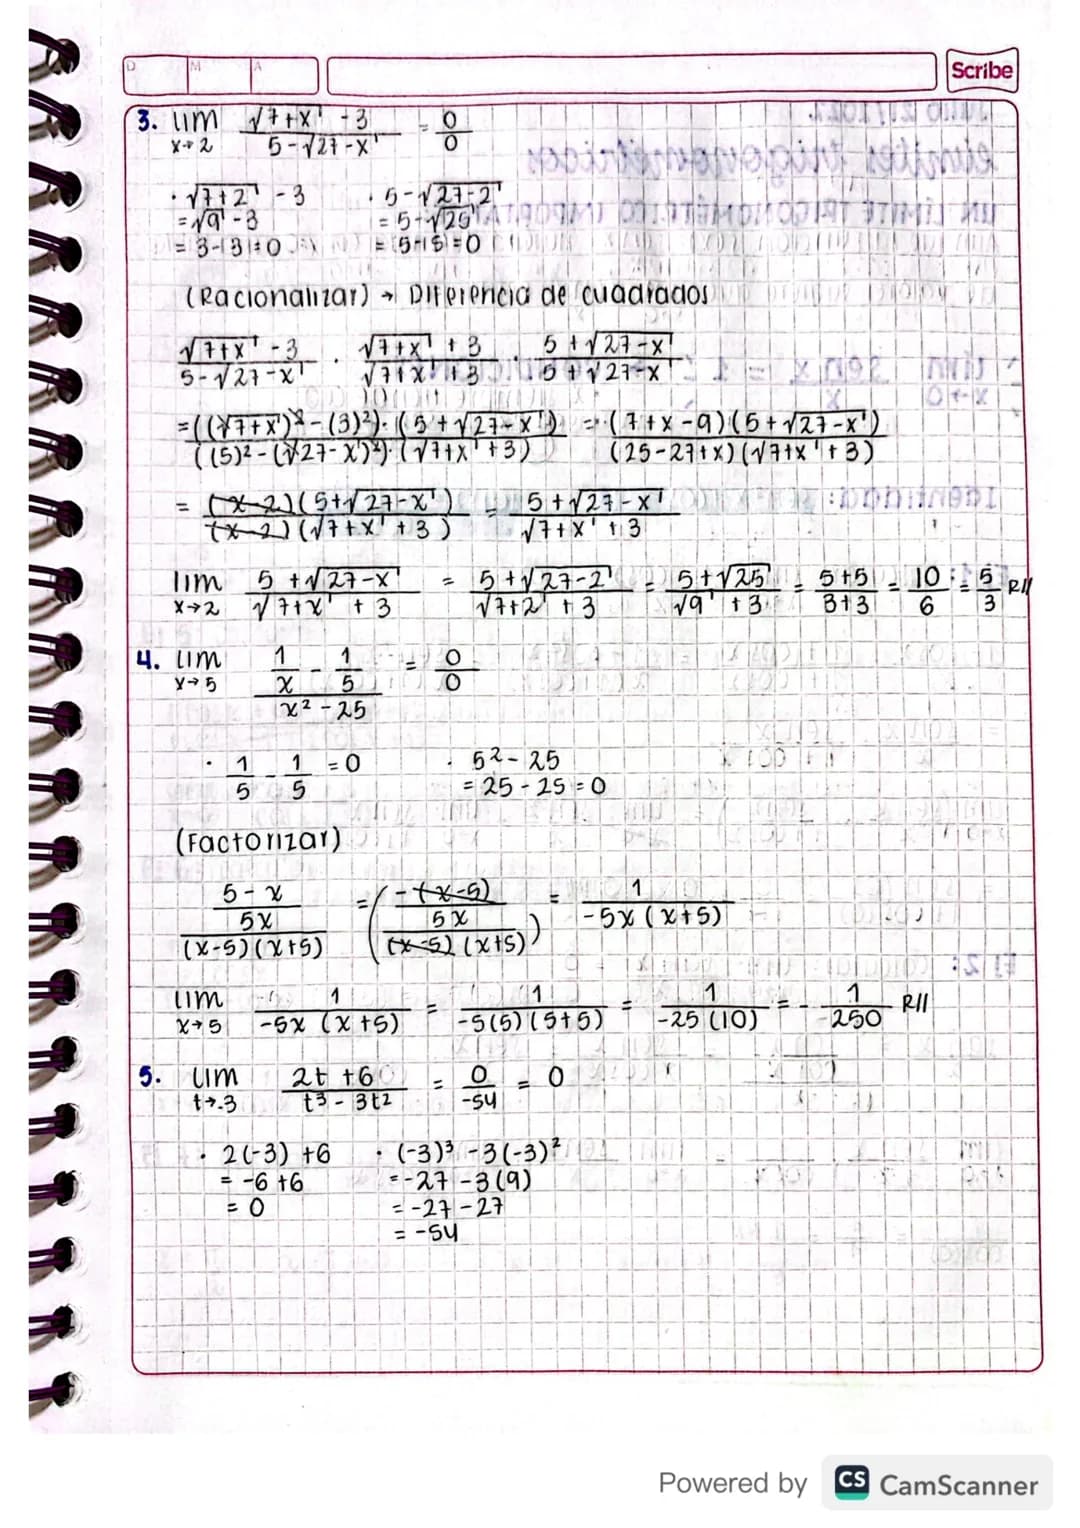 D M A
Scribe
3. lim √7+x - 3 / 5-√27-x = 0/0
x→2
· √7+2 - 3 · 5-√27-2
= √9 - 3 = 5-√25
= 3-3 = 0 = 5-5 = 0
(Racionalizar) → Diferencia de cuadrados
√7+x - 3 / 5-√27-x · √7+x + 3 / √7+x + 3 · 5+√27-x / 5+√27-x
= ((√7+x)² - (3)²)·(5+√27-x) / ((5)² - (√27-x)²)·(√7+x + 3) = (7+x-9)(5+√27-x) / (25-27+x)(√7+x + 3)
= (x-2)(5+√27-x) / (x-2)(√7+x + 3) = 5+√27-x / √7+x + 3
lim 5+√27-x / √7+x + 3 = 5+√27-2 / √7+2 + 3 = 5+√25 / √9 + 3 = 5+5 / 3+3 = 10/6 = 5/3 R//
x→2
4. lim 1/x - 1/5 / x²-25 = 0/0
x→5
· 1/5 - 1/5 = 0 · 5² - 25
= 25 - 25 = 0
(Factorizar)
5-x / 5x / (x-5)(x+5) = ( -(x-5) / 5x / (x-5)(x+5) ) = 1 / -5x(x+5)
lim 1 / -5x (x+5) = 1 / -5(5)(5+5) = 1 / -25(10) = - 1 / 250 R//
x→5
5. lim 2t+6 / t³-3t² = 0 / -54 = 0
t→-3
· 2(-3)+6 · (-3)³ -3(-3)²
= -6+6 = -27 -3(9)
= 0 = -27-27
= -54
Powered by CS CamScanner